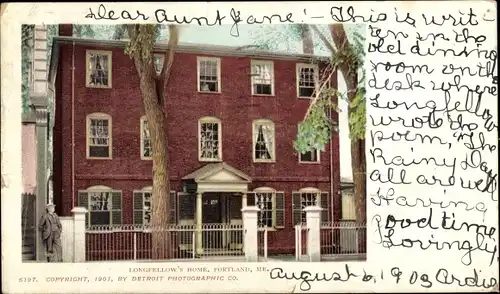 Dear Aunt Jane!- This is writ-
ten in the
old dining
room on the
desk where
Longfellow
wrote the
poem, "The
Rainy Day
all are well
Having
good time
Lovingly
August 6, 1903 Ardis
LONGFELLOW'S HOME, PORTLAND, ME.
6197. COPYRIGHT, 1901, BY DETROIT PHOTOGRAPHIC CO.